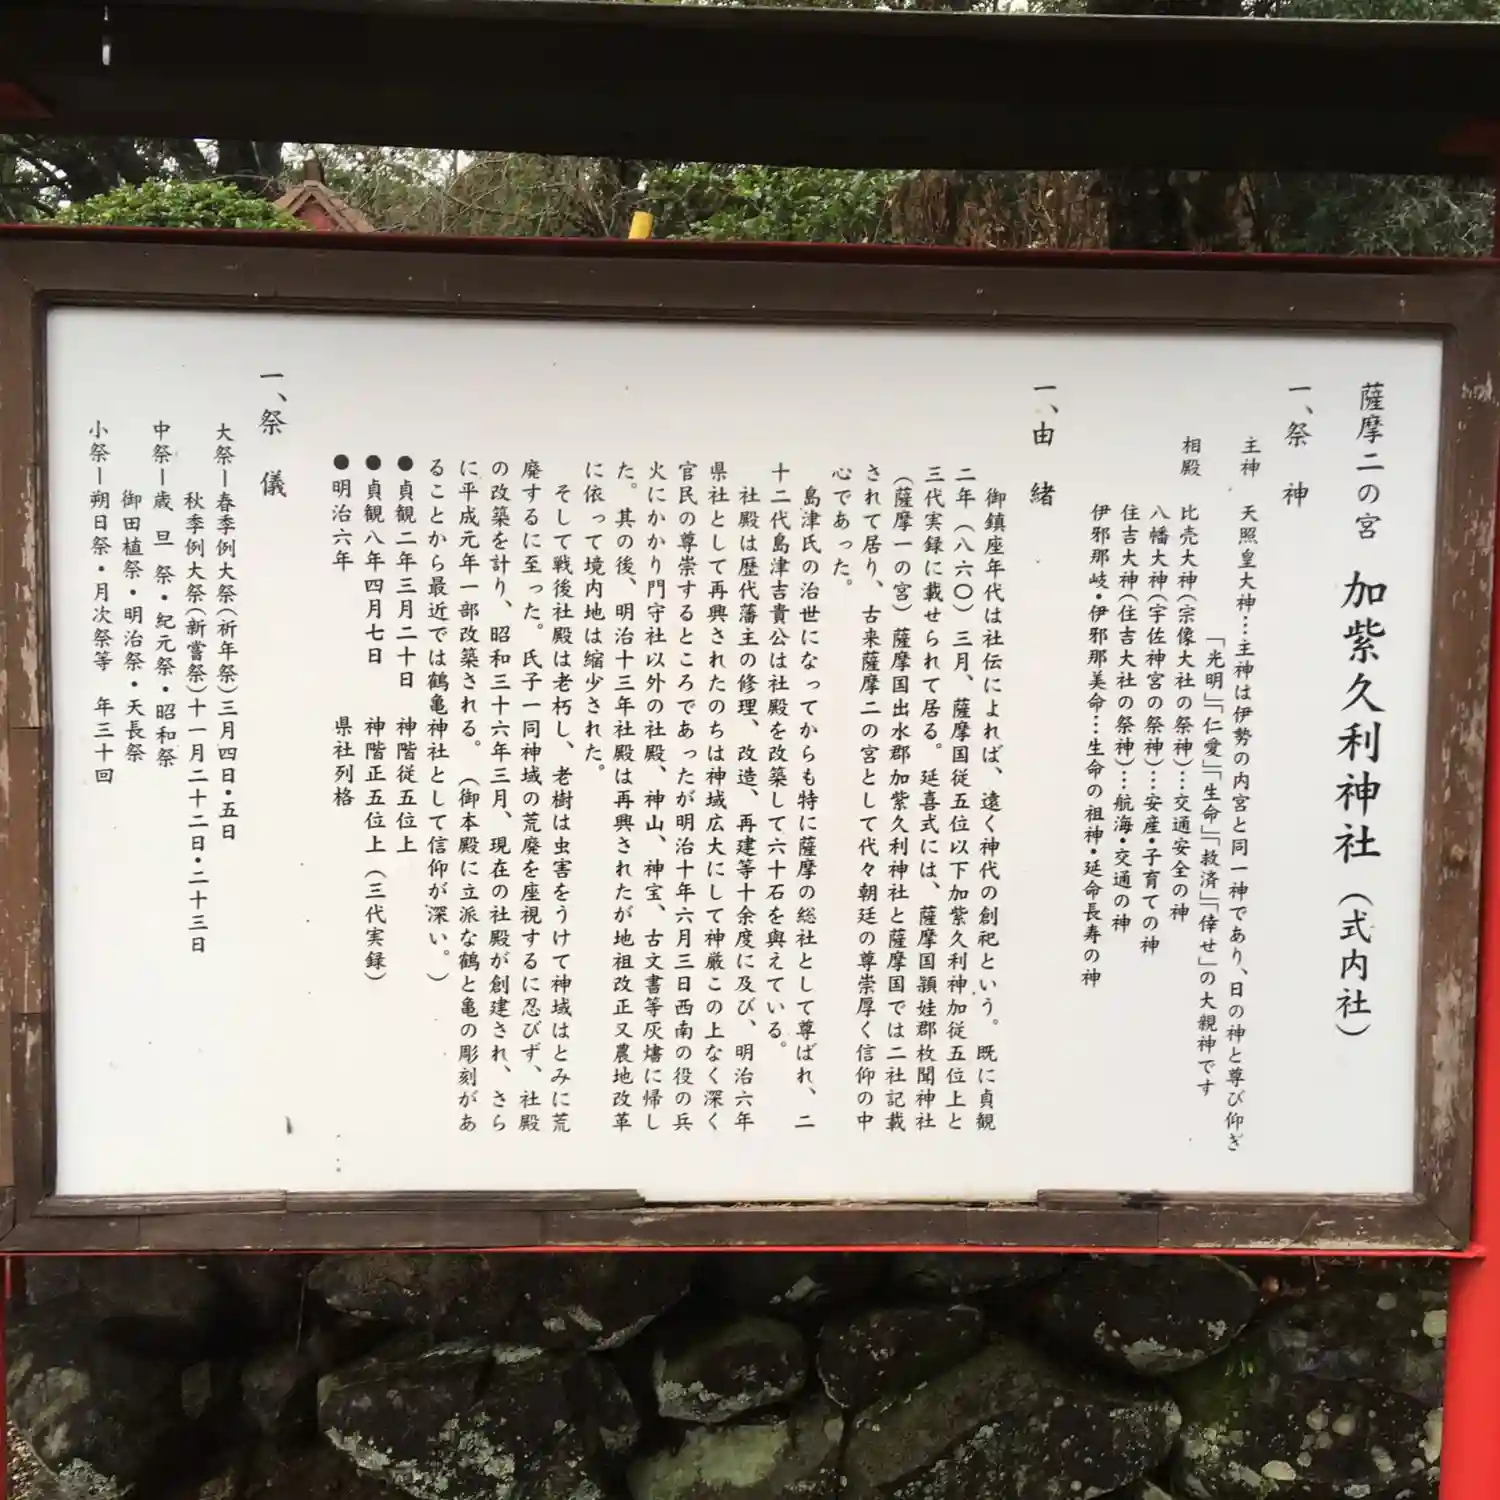 薩摩二の宮 加紫久利神社(式内社)
一、祭 神
主神 天照皇大神…主神は伊勢の内宮と同一神であり、日の神と尊び仰ぎ
「光明」「仁愛」「生命」「救済」「倖せ」の大親神です
相殿 比売大神(宗像大社の祭神)…交通安全の神
八幡大神(宇佐神宮の祭神)…安産・子育ての神
住吉大神(住吉大社の祭神)…航海・交通の神
伊邪那岐・伊邪那美命…生命の祖神・延命長寿の神
一、由 緒
御鎮座年代は社伝によれば、遠く神代の創祀という。既に貞観
二年(八六〇)三月、薩摩国従五位以下加紫久利神加従五位上と
三代実録に載せられて居る。延喜式には、薩摩国頴娃郡枚聞神社
(薩摩一の宮)薩摩国出水郡加紫久利神社と薩摩国では二社記載
されて居り、古来薩摩二の宮として代々朝廷の尊崇厚く信仰の中
心であった。
島津氏の治世になってからも特に薩摩の総社として尊ばれ、二
十二代島津吉貴公は社殿を改築して六十石を與えている。
社殿は歴代藩主の修理、改造、再建等十余度に及び、明治六年
県社として再興されたのちは神域広大にして神厳この上なく深く
官民の尊崇するところであったが明治十年六月三日西南の役の兵
火にかかり門守社以外の社殿、神山、神宝、古文書等灰燼に帰し
た。其の後、明治十三年社殿は再興されたが地祖改正又農地改革
に依って境内地は縮少された。
そして戦後社殿は老朽し、老樹は虫害をうけて神域はとみに荒
廃するに至った。氏子一同神域の荒廃を座視するに忍びず、社殿
の改築を計り、昭和三十六年三月、現在の社殿が創建され、さら
に平成元年一部改築される。(御本殿に立派な鶴と亀の彫刻があ
ることから最近では鶴亀神社として信仰が深い。)
●貞観二年三月二十日 神階従五位上
●貞観八年四月七日 神階正五位上(三代実録)
●明治六年 県社列格
一、祭 儀
大祭―春季例大祭(祈年祭)三月四日・五日
秋季例大祭(新嘗祭)十一月二十二日・二十三日
中祭―歳 旦 祭・紀元祭・昭和祭
御田植祭・明治祭・天長祭
小祭―朔日祭・月次祭等 年三十回